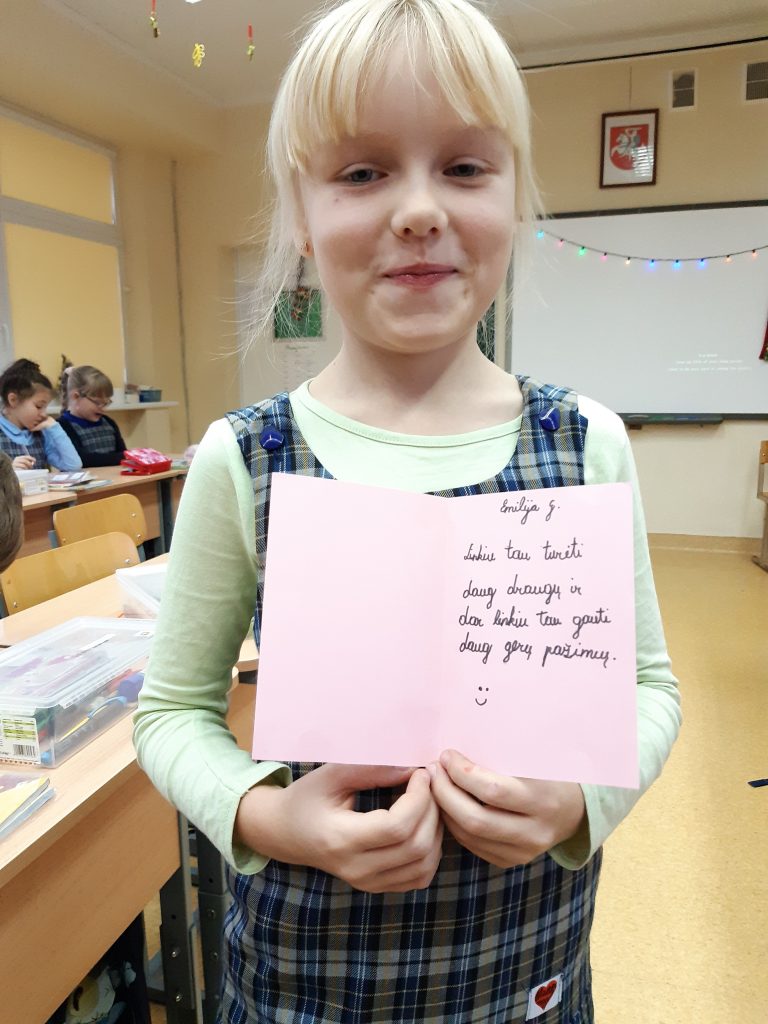 Emilija G.
Linkiu tau turėti
daug draugų ir
dar linkiu tau gauti
daug gerų pažimių.